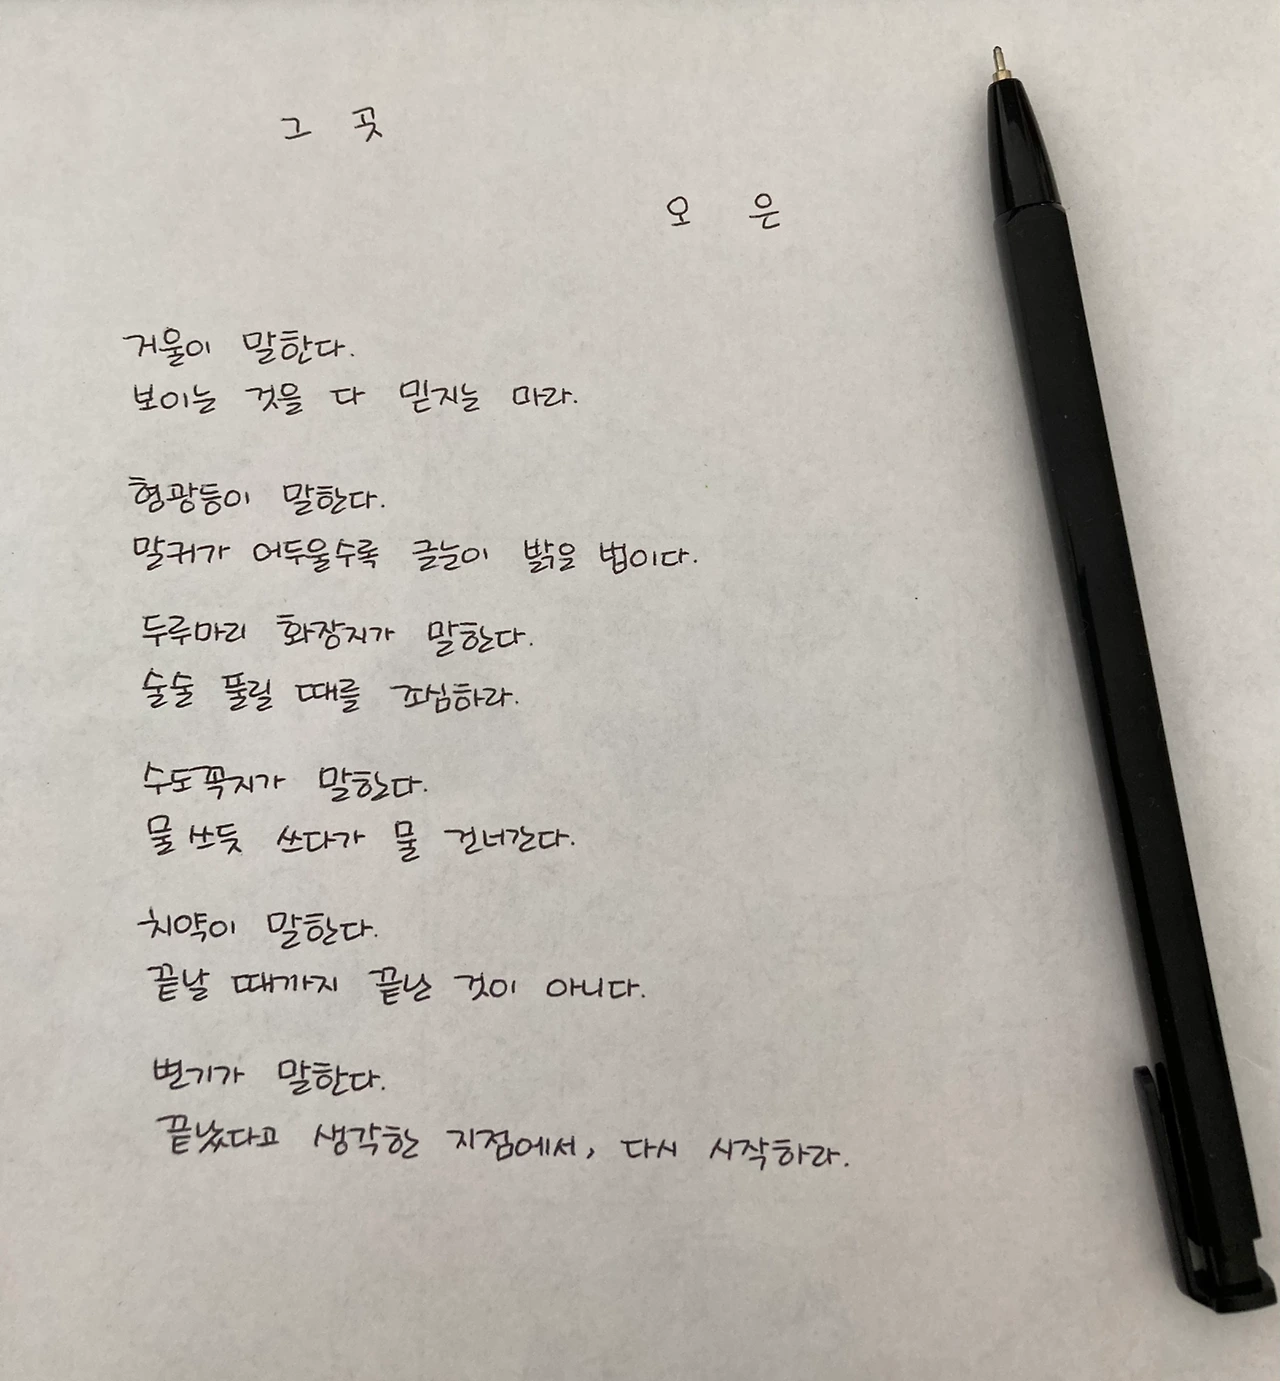 그 곳
오 은
거울이 말한다.
보이는 것을 다 믿지는 마라.
형광등이 말한다.
말귀가 어두울수록 글눈이 밝은 법이다.
두루마리 화장지가 말한다.
술술 풀릴 때를 조심하라.
수도꼭지가 말한다.
물 쓰듯 쓰다가 물 건너간다.
치약이 말한다.
끝날 때까지 끝난 것이 아니다.
변기가 말한다.
끝났다고 생각한 지점에서, 다시 시작하라.